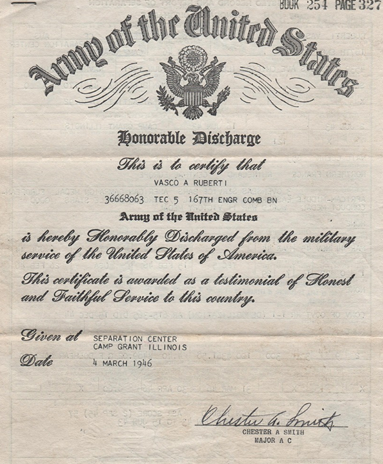 BOOK 254 PAGE 327
Army of the United States
Honorable Discharge
This is to certify that
VASCO A RUBERTI
36668063 TEC 5 167TH ENGR COMB BN
Army of the United States
is hereby Honorably Discharged from the military
service of the United States of America.
This certificate is awarded as a testimonial of Honest
and Faithful Service to this country.
Given at SEPARATION CENTER
CAMP GRANT ILLINOIS
Date 4 MARCH 1946
Chester A. Smith
CHESTER A SMITH
MAJOR A C